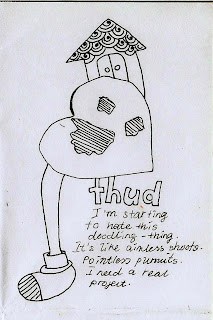 thud
I'm starting
to hate this
doodling-thing.
It's like aimless shoots.
Pointless pursuits.
I need a real
project.